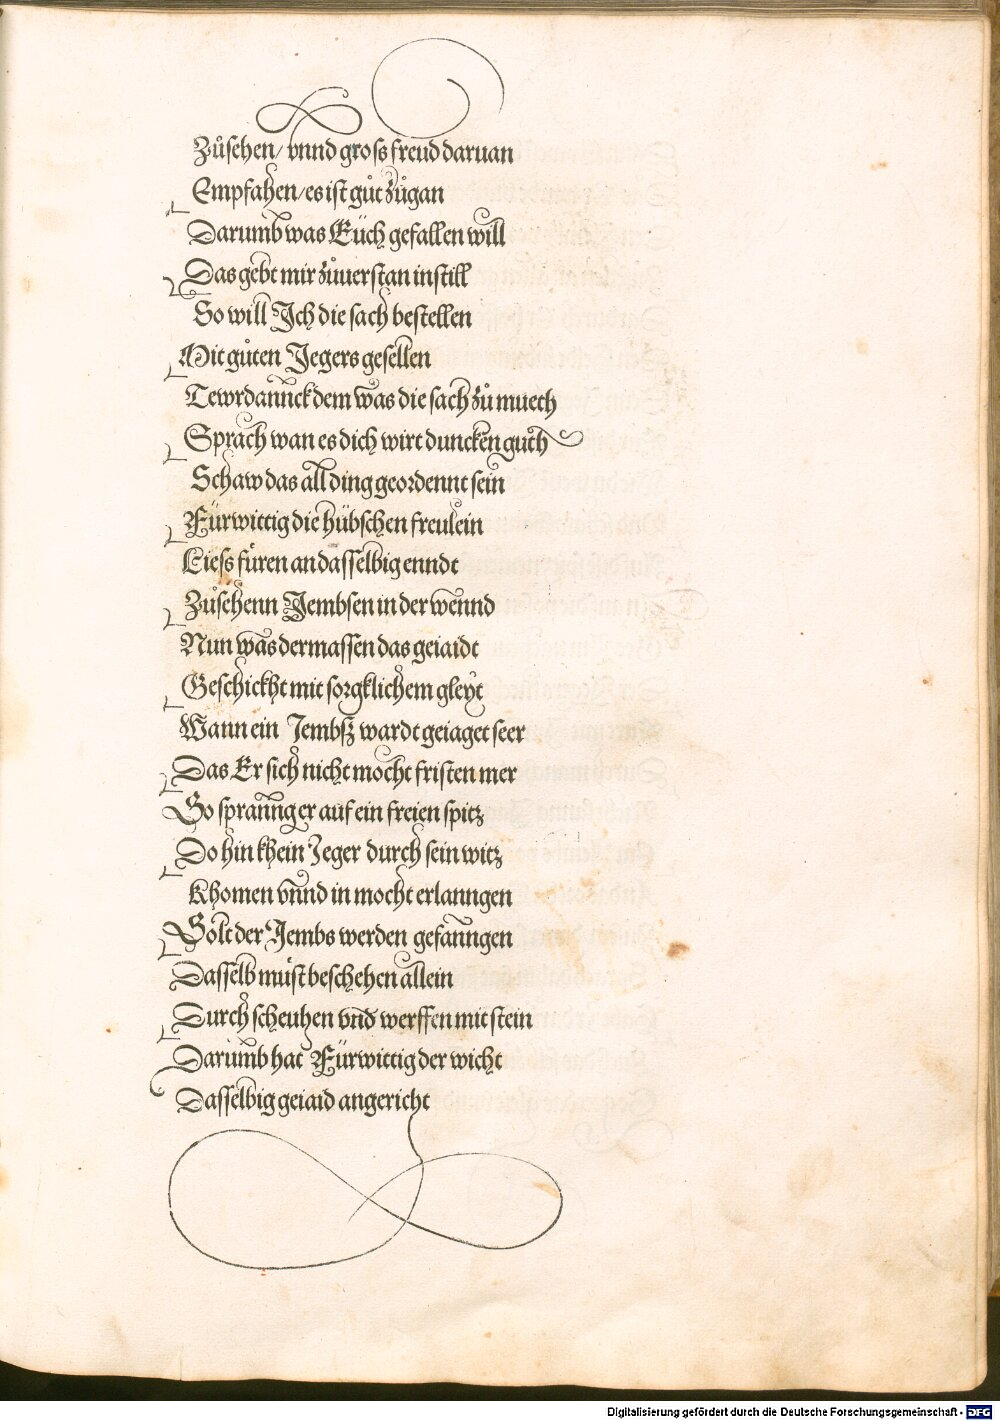 Zůsehen/ vnnd gross freud daruan
Empfahen/ es ist gůt zůgan
Darumb was Eüch gefallen will
Das gebt mir zůuerstan in still
So will Ich die sach bestellen
Mit gůten Jegers gesellen
Tewrdannck dem was die sach zů muech
Sprach wan es dich wirt duncken guth
Schaw das all ding geordennt sein
Fürwittig die hübschen freulein
Liess füren an dasselbig enndt
Zůsehenn Gembsen in der wennd
Nun was dermassen das geiaidt
Geschickht mit sorgklichem gleyt
Wann ein Gembsz wardt geiaget seer
Das Er sich nicht mocht fristen mer
So sprannger auf ein freien spitz
Do hin khein Jeger durch sein witz
Khomen vnnd in mocht erlanngen
Solt der Gembs werden gefanngen
Dasselb můst beschehen allein
Durch scheuhen vnd werffen mit stein
Darumb hat Fürwittig der wicht
Dasselbig geiaid angericht
Digitalisierung gefördert durch die Deutsche Forschungsgemeinschaft - DFG